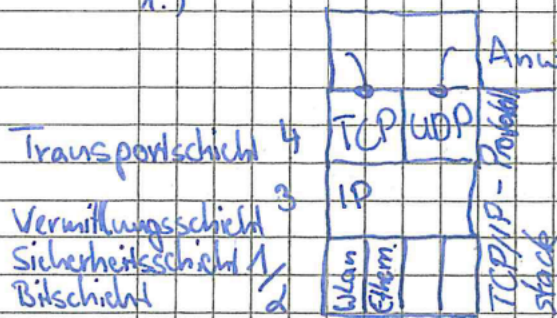 Anw
Transportschicht 4 TCP UDP
3 IP
Vermittlungsschicht
Sicherheitsschicht 1/2
Bitschicht
Wlan
Ethern.
TCP/IP-Protokoll
stack